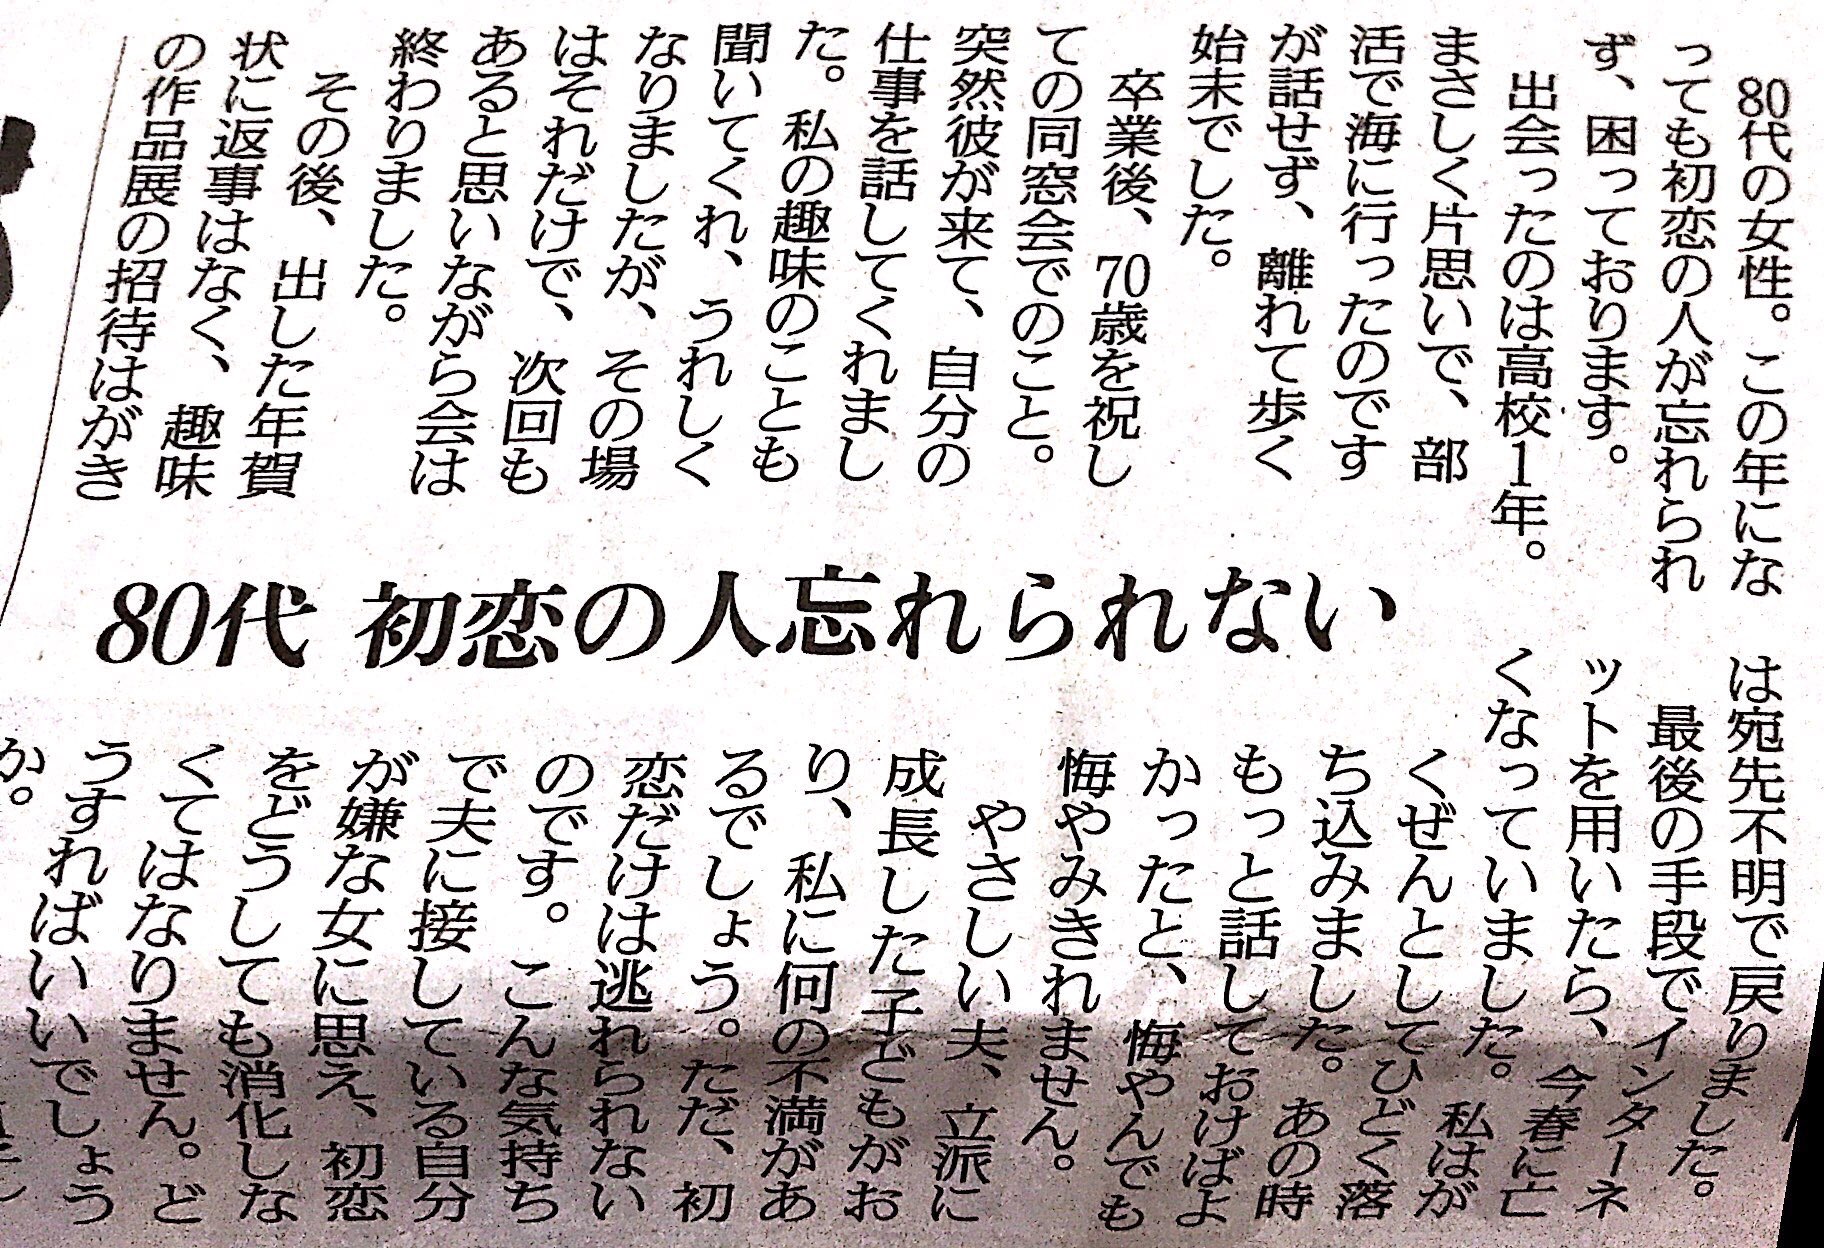 80代 初恋の人忘れられない
80代の女性。この年にな
っても初恋の人が忘れられ
ず、困っております。
出会ったのは高校1年。
まさしく片思いで、部
活で海に行ったのです
が話せず、離れて歩く
始末でした。
卒業後、70歳を祝し
ての同窓会でのこと。
突然彼が来て、自分の
仕事を話してくれまし
た。私の趣味のことも
聞いてくれ、うれしく
なりましたが、その場
はそれだけで、次回も
あると思いながら会は
終わりました。
その後、出した年賀
状に返事はなく、趣味
の作品展の招待はがき
は宛先不明で戻りました。
最後の手段でインターネ
ットを用いたら、今春に亡
くなっていました。私はが
くぜんとしてひどく落
ち込みました。あの時
もっと話しておけばよ
かったと、悔やんでも
悔やみきれません。
やさしい夫、立派に
成長した子どもがお
り、私に何の不満があ
るでしょう。ただ、初
恋だけは逃れられない
のです。こんな気持ち
で夫に接している自分
が嫌な女に思え、初恋
をどうしても消化しな
くてはなりません。ど
うすればいいでしょう
か。